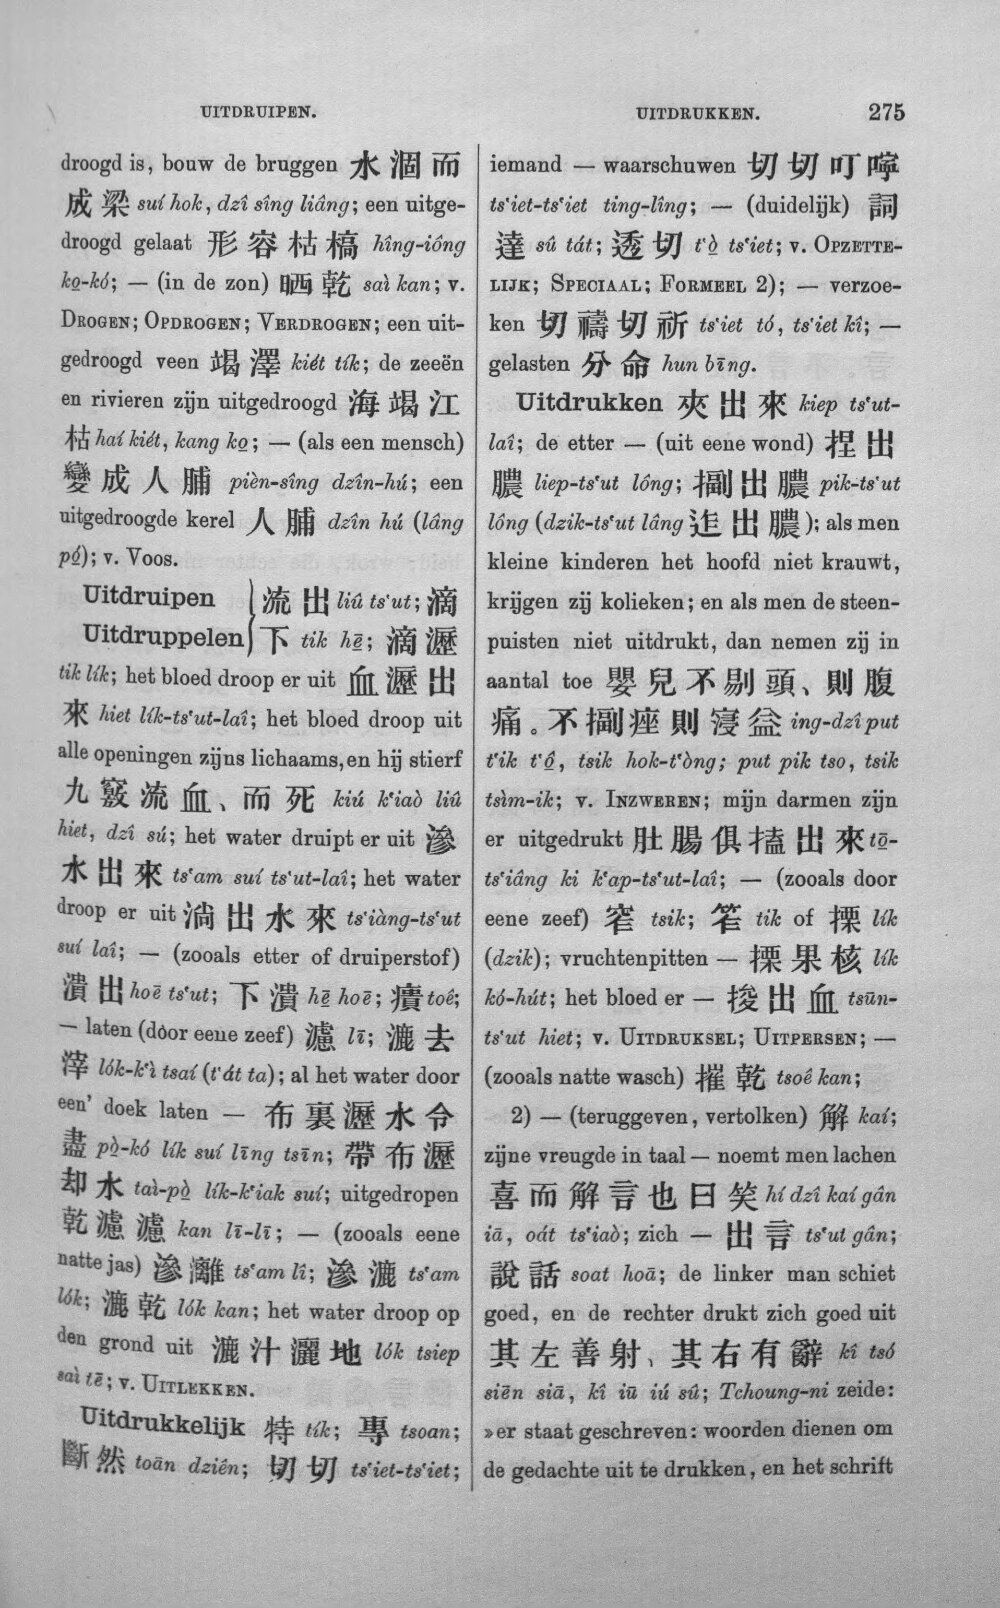 UITDRUIPEN.
UITDRUKKEN.
275
droogd is, bouw de bruggen 水涸而
成梁 suí hok, dzî sîng liâng; een uitge-
droogd gelaat 形容枯槁 hîng-iông
ko̤-kó; — (in de zon) 晒乾 saì kan; v.
DROGEN; OPDROGEN; VERDROGEN; een uit-
gedroogd veen 竭澤 kiét tík; de zeeën
en rivieren zijn uitgedroogd 海竭江
枯 haí kiét, kang ko̤; — (als een mensch)
變成人脯 pièn-sîng dzîn-hú; een
uitgedroogde kerel 人脯 dzîn hú (lâng
pó̤); v. Voos.
Uitdruipen } 流出 liû ts‘ut; 滴
Uitdruppelen } 下 tik hē̤; 滴瀝
tik lík; het bloed droop er uit 血瀝出
來 hiet lík-ts‘ut-laî; het bloed droop uit
alle openingen zijns lichaams, en hij stierf
九竅流血、而死 kiú k‘iaò liû
hiet, dzî sú; het water druipt er uit 滲
水出來 ts‘am suí ts‘ut-laî; het water
droop er uit 淌出水來 ts‘iàng-ts‘ut
suí laî; — (zooals etter of druiperstof)
潰出 hoē ts‘ut; 下潰 hē̤ hoē; 㿉 toê;
— laten (door eene zeef) 濾 lī; 漉去
滓 lók-k‘ì tsaí (t‘át ta); al het water door
een’ doek laten — 布裏瀝水令
盡 pò̤-kó lík suí līng tsīn; 帶布瀝
却水 taì-pò̤ lík-k‘iak suí; uitgedropen
乾濾濾 kan lī-lī; — (zooals eene
natte jas) 滲灕 ts‘am lî; 滲漉 ts‘am
lók; 漉乾 lók kan; het water droop op
den grond uit 漉汁灑地 lók tsiep
saì tē; v. UITLEKKEN.
Uitdrukkelijk 特 tík; 專 tsoan;
斷然 toān dzién; 切切 ts‘iet-ts‘iet;
iemand — waarschuwen 切切叮嚀
ts‘iet-ts‘iet ting-lîng; — (duidelijk) 詞
達 sû tát; 透切 t‘ò̤ ts‘iet; v. OPZETTE-
LIJK; SPECIAAL; FORMEEL 2); — verzoe-
ken 切禱切祈 ts‘iet tó, ts‘iet kî; —
gelasten 分命 hun bīng.
Uitdrukken 夾出來 kiep ts‘ut-
laî; de etter — (uit eene wond) 捏出
膿 liep-ts‘ut lông; 揊出膿 pik-ts‘ut
lông (dzik-ts‘ut lâng 迮出膿); als men
kleine kinderen het hoofd niet krauwt,
krijgen zij kolieken; en als men de steen-
puisten niet uitdrukt, dan nemen zij in
aantal toe 嬰兒不剔頭、則腹
痛。不揊痤則寖益 ing-dzî put
t‘ik t‘ô̤, tsik hok-t‘òng; put pik tso, tsik
tsìm-ik; v. INZWEREN; mijn darmen zijn
er uitgedrukt 肚腸俱搕出來 tō̤-
ts‘iâng ki k‘ap-ts‘ut-laî; — (zooals door
eene zeef) 窄 tsik; 笮 tik of 㮚 lík
(dzik); vruchtenpitten — 㮚果核 lík
kó-hút; het bloed er — 捘出血 tsūn-
ts‘ut hiet; v. UITDRUKSEL; UITPERSEN; —
(zooals natte wasch) 摧乾 tsoê kan;
2) — (teruggeven, vertolken) 解 kaí;
zijne vreugde in taal — noemt men lachen
喜而解言也曰笑 hí dzî kaí gân
iā, oát ts‘iaò; zich — 出言 ts‘ut gân;
說話 soat hoā; de linker man schiet
goed, en de rechter drukt zich goed uit
其左善射、其右有辭 kî tsó
siēn siā, kî iū iú sû; Tchoung-ni zeide:
»er staat geschreven: woorden dienen om
de gedachte uit te drukken, en het schrift